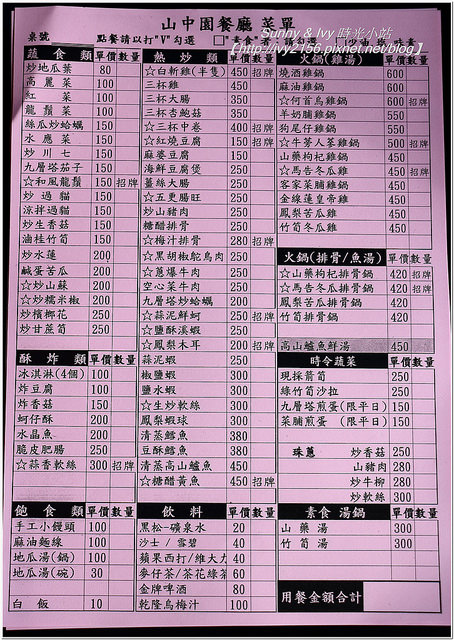 山中園餐廳 菜單
桌號
點餐請以打"V"勾選
Sunny & Ivy 蒔光小站
【http://ivy2156.pixnet.net/blog】
蔬食類 單價 數量
炒地瓜葉 80
高麗菜 100
紅菜 100
龍鬚菜 100
絲瓜炒蛤蠣 150
水應菜 150
炒川七 150
九層塔茄子 150
☆和風龍鬚 150 招牌
炒過貓 150
涼拌過貓 150
炒生香菇 150
滷桂竹筍 150
炒水蓮 200
鹹蛋苦瓜 200
☆炒山蘇 200
☆炒糯米椒 200
炒檳榔花 250
炒甘蔗筍 250
酥炸類 單價 數量
冰淇淋(4個) 100
炸豆腐 100
炸香菇 150
蚵仔酥 200
水晶魚 200
脆皮肥腸 250
☆蒜香軟絲 300 招牌
飽食類 單價 數量
手工小饅頭 100
麻油麵線 100
地瓜湯(鍋) 100
地瓜湯(碗) 30
白飯 10
熱炒類 單價 數量
☆白斬雞(半隻) 450 招牌
三杯雞 450
三杯大腸 350
三杯杏鮑菇 350
☆三杯中卷 400 招牌
☆紅燒豆腐 150 招牌
麻婆豆腐 150
海鮮豆腐煲 250
薑絲大腸 250
☆五更腸旺 250
炒山豬肉 250
糖醋排骨 250
☆梅汁排骨 280 招牌
☆黑胡椒鴕鳥肉 250
☆蔥爆牛肉 250
空心菜牛肉 250
九層塔炒蛤蠣 200
☆蒜泥鮮蚵 250 招牌
☆鹽酥溪蝦 250
☆鳳梨木耳 200 招牌
蒜泥蝦 250
椒鹽蝦 300
鹽水蝦 300
☆生炒軟絲 300
鳳梨蝦球 300
清蒸鱈魚 380
豆酥鱈魚 380
清蒸高山鱸魚 450
☆糖醋黃魚 450 招牌
飲料 單價 數量
黑松-礦泉水 20
沙士 / 雪碧 40
蘋果西打/維大力 40
麥仔茶/茶花綠茶 60
金牌啤酒 80
乾隆烏梅汁 100
火鍋(雞湯) 單價 數量
燒酒雞鍋 600
麻油雞鍋 600
☆何首烏雞鍋 600 招牌
羊奶脯雞鍋 550
狗尾仔雞鍋 550
☆牛蒡人蔘雞鍋 500 招牌
山藥枸杞雞鍋 450
☆馬告冬瓜雞 450 招牌
客家菜脯雞鍋 450
金線蓮皇帝雞 450
鳳梨苦瓜雞 450
竹筍冬瓜雞 450
火鍋(排骨/魚湯) 單價 數量
☆山藥枸杞排骨鍋 420 招牌
☆馬告冬瓜排骨鍋 420 招牌
鳳梨苦瓜排骨鍋 420
竹筍排骨鍋 420
高山鱸魚鮮湯 450
時令蔬菜 單價 數量
現採箭筍 250
綠竹筍沙拉 250
九層塔煎蛋(限平日) 150
菜脯煎蛋 (限平日) 150
珠蔥 炒香菇 250
山豬肉 280
炒牛柳 280
炒軟絲 300
素食 湯鍋 單價 數量
山藥湯 300
竹筍湯 300
用餐金額合計